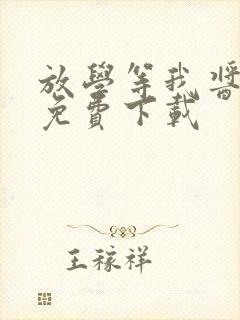 放學等我醬
免費下載
王稼祥